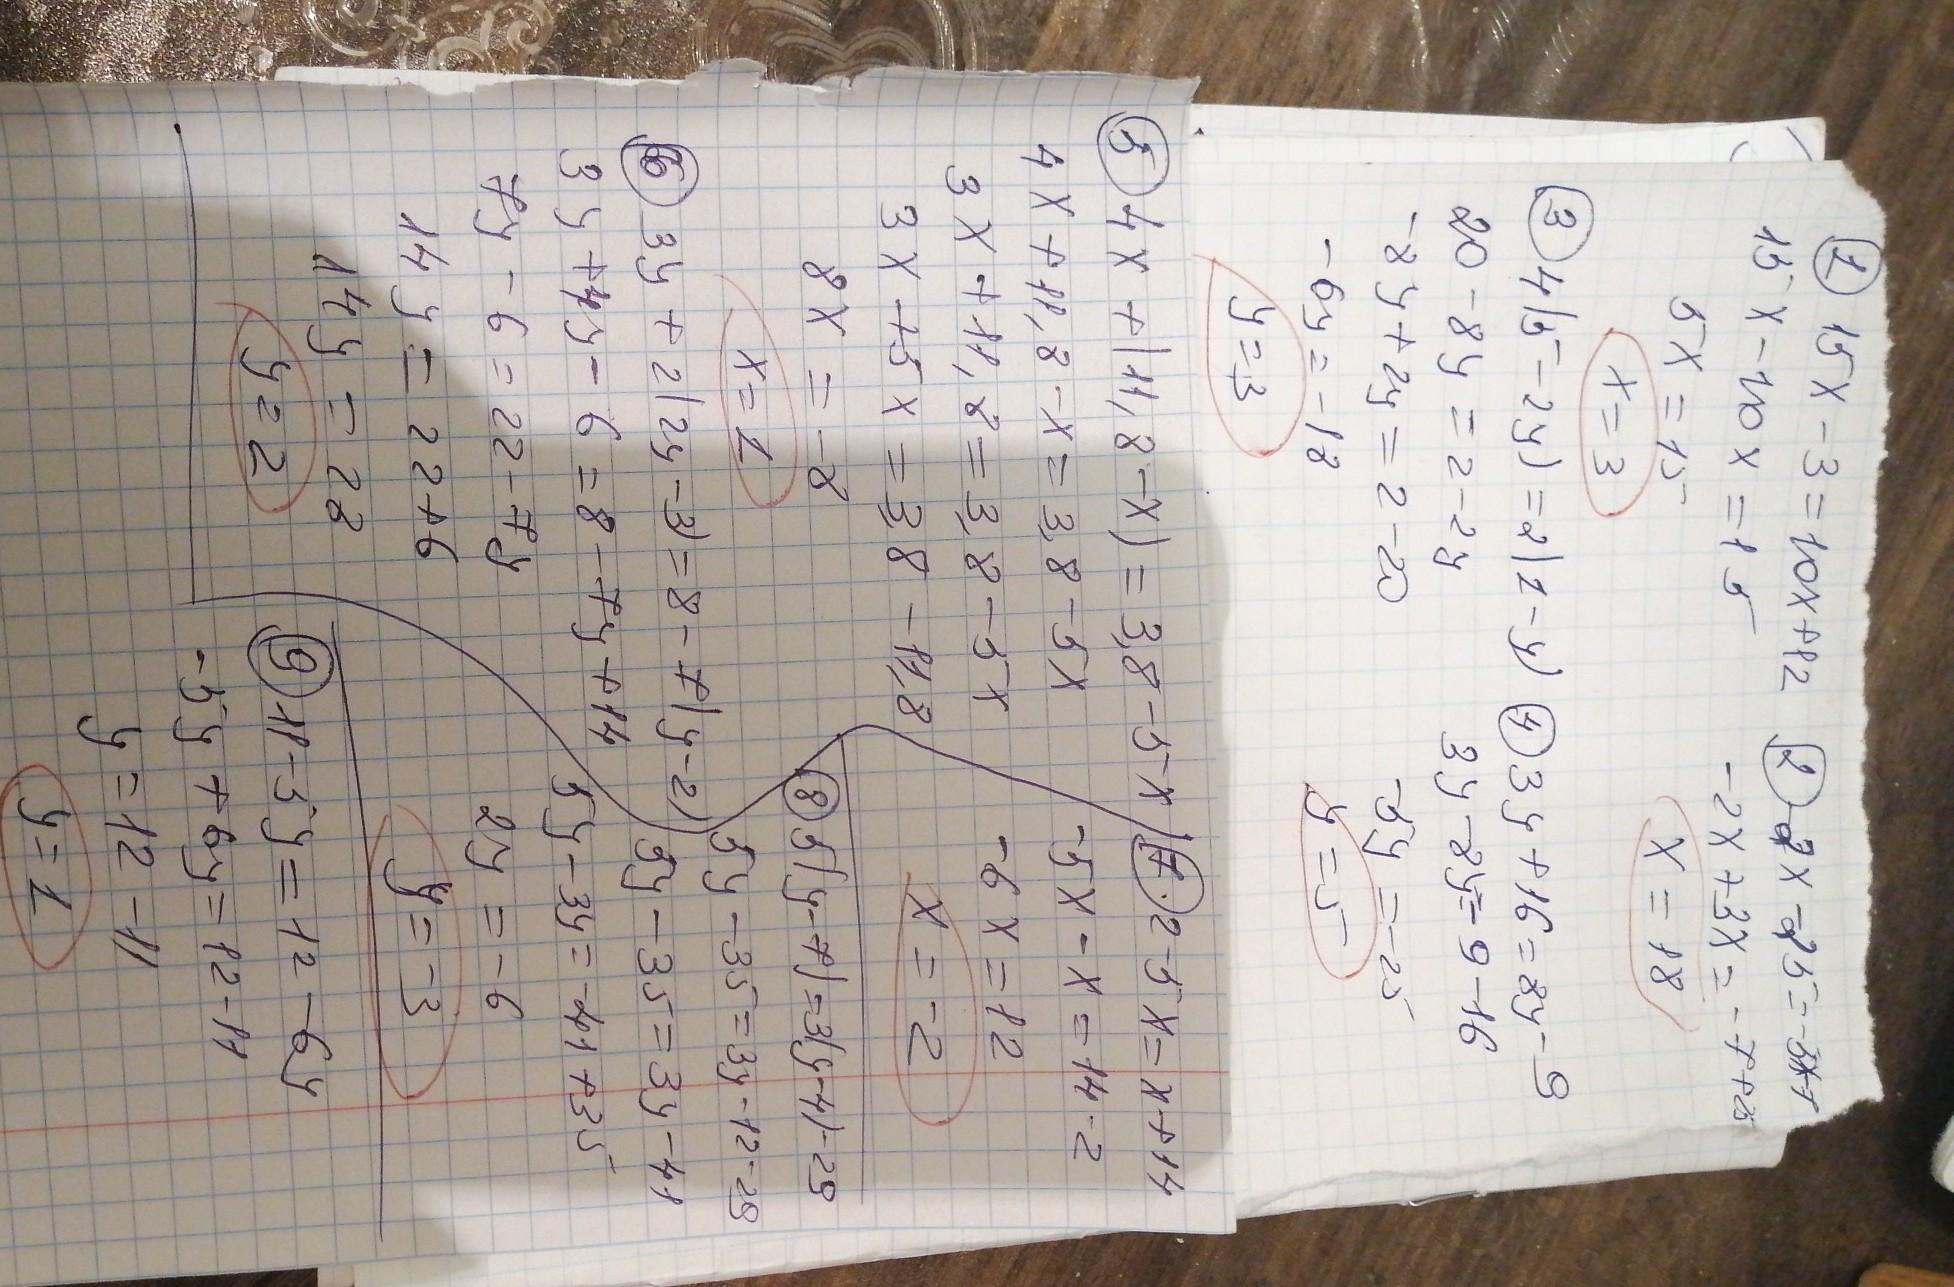 ① 15x - 3 = 10x + 12
15x - 10x = 15
5x = 15
x = 3
② -2x - 25 = -3x - 7
-2x + 3x = -7 + 25
x = 18
③ 4(5 - 2y) = 2(1 - y)
20 - 8y = 2 - 2y
-8y + 2y = 2 - 20
-6y = -18
y = 3
④ 3y + 16 = 8y - 9
3y - 8y = -9 - 16
-5y = -25
y = 5
⑤ 4x + (11,8 - x) = 3,8 - 5x
4x + 11,8 - x = 3,8 - 5x
3x + 11,8 = 3,8 - 5x
3x + 5x = 3,8 - 11,8
8x = -8
x = 1
⑥ 3y + 2(2y - 3) = 8 - 7(y - 2)
3y + 4y - 6 = 8 - 7y + 14
7y - 6 = 22 - 7y
14y = 22 + 6
14y = 28
y = 2
⑦ 2 - 5x = x + 14
-5x - x = 14 - 2
-6x = 12
x = -2
⑧ 5(y - 7) = 3(y - 4) - 29
5y - 35 = 3y - 12 - 29
5y - 35 = 3y - 41
5y - 3y = -41 + 35
2y = -6
y = -3
⑨ 11 - 5y = 12 - 6y
-5y + 6y = 12 - 11
y = 12 - 11
y = 1